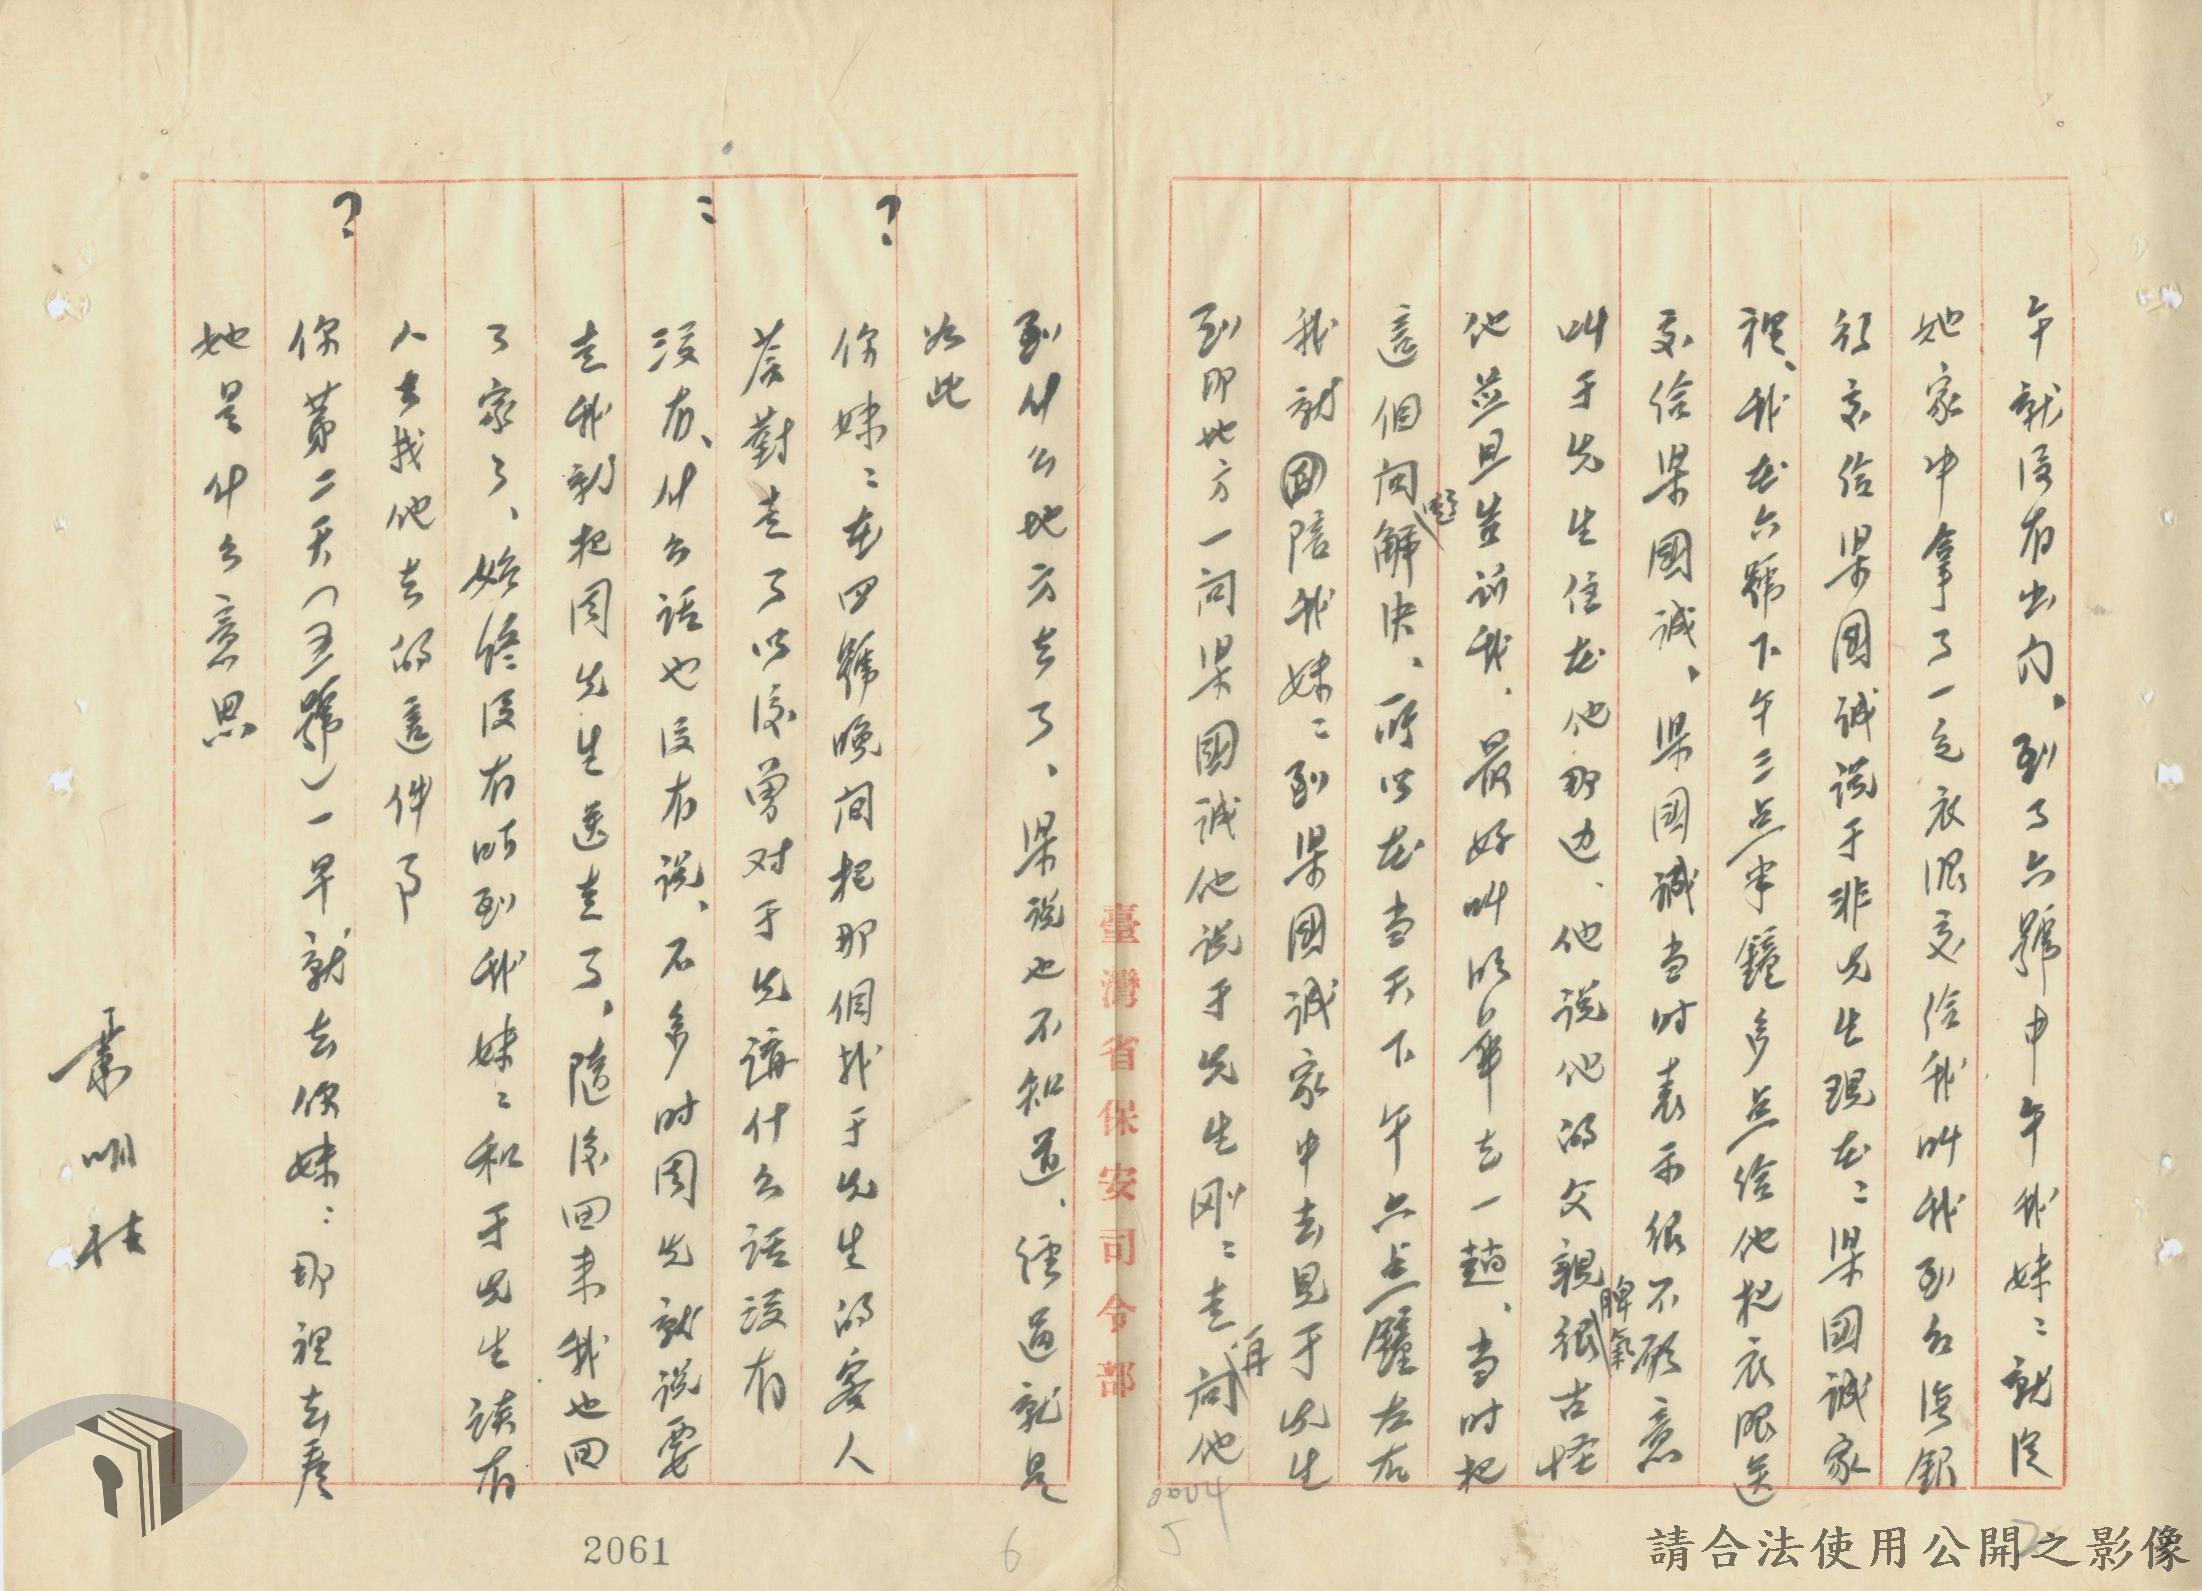 午就沒有出门、到了六號中午我妹〻就從
她家中拿了一包衣服交给我叫我到台湾銀
行交给梁國诚说于非先生現在〻梁國诚家
裡、我在六號下午三点半鐘多点给他把衣服送
交给梁國诚、梁國诚当时表示很不願意
叫于先生住在他那边、他说他的父親脾氣很古怪
他並且告訴我、最好叫明華去一趟、当时把
這個问題解决、所以在当天下午六点鐘左右
我就陪我妹〻到梁國诚家中去見于先生
到那地方一问梁國诚他说于先生刚〻走再问他
到什么地方去了、梁说也不知道、經過就是
如此
? 你妹〻在四號晚间把那個找于先生的客人
蒼對走了以後曾对于先講什么話没有
： 没有、什么話也没有说、不多时周先就说要
走我就把周先生送走了、隨後回来我也回
了家了、始终没有听到我妹〻和于先生談有
人去找他去的這件事
? 你第二天（五號）一早就去你妹〻那裡去是
她是什么意思
蕭明柱
臺灣省保安司令部
2061
6
5
請合法使用公開之影像